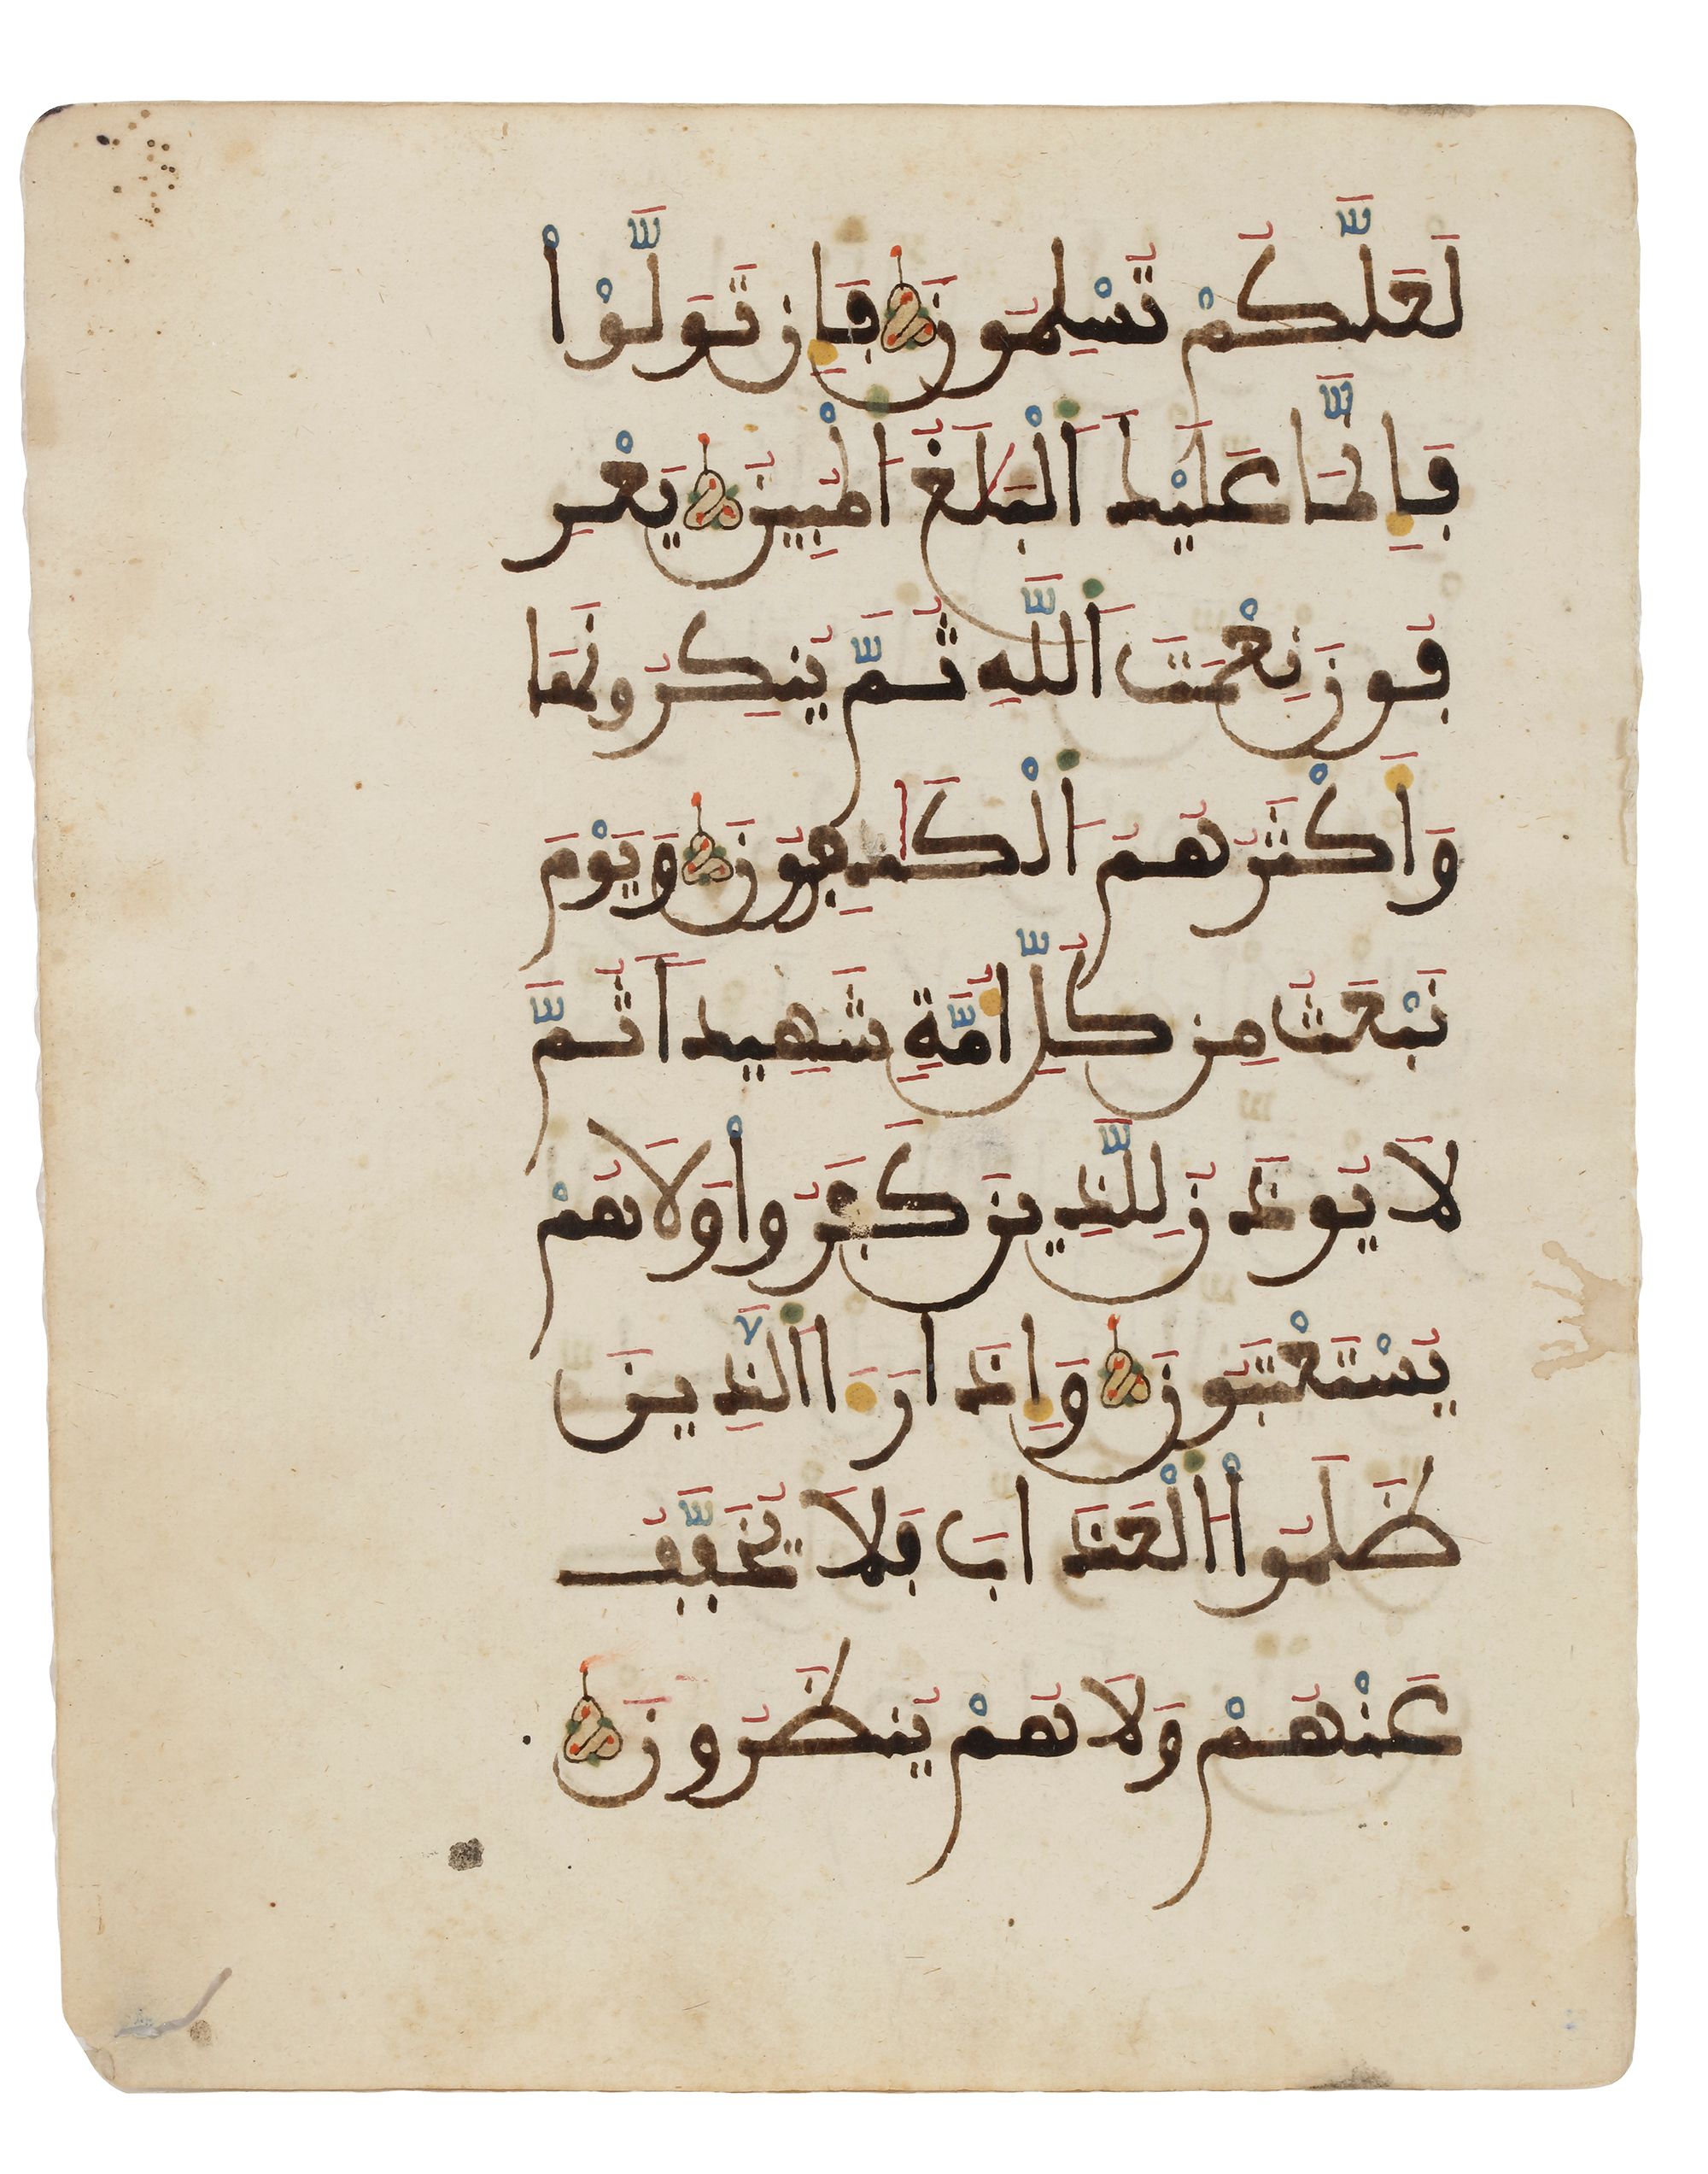 لَعَلَّكُمْ تُسْلِمُونَ فَإِن تَوَلَّوْاْ
فَإِنَّمَا عَلَيْكَ اَ۬لْبَلَٰغُ اُ۬لْمُبِينُ يَعْرِ
فُونَ نِعْمَتَ اَ۬للَّهِ ثُمَّ يُنكِرُونَهَا
وَأَكْثَرُهُمُ اُ۬لْكَٰفِرُونَ وَيَوْمَ
نَبْعَثُ مِن كُلِّ أُمَّةٖ شَهِيداٗ ثُمَّ
لَا يُوذَنُ لِلَّذِينَ كَفَرُواْ وَلَا هُمْ
يُسْتَعْتَبُونَ وَإِذَا رَءَا اَ۬لَّذِينَ
ظَلَمُواْ اُ۬لْعَذَابَ فَلَا يُخَفَّفُ
عَنْهُمْ وَلَا هُمْ يُنظَرُونَ